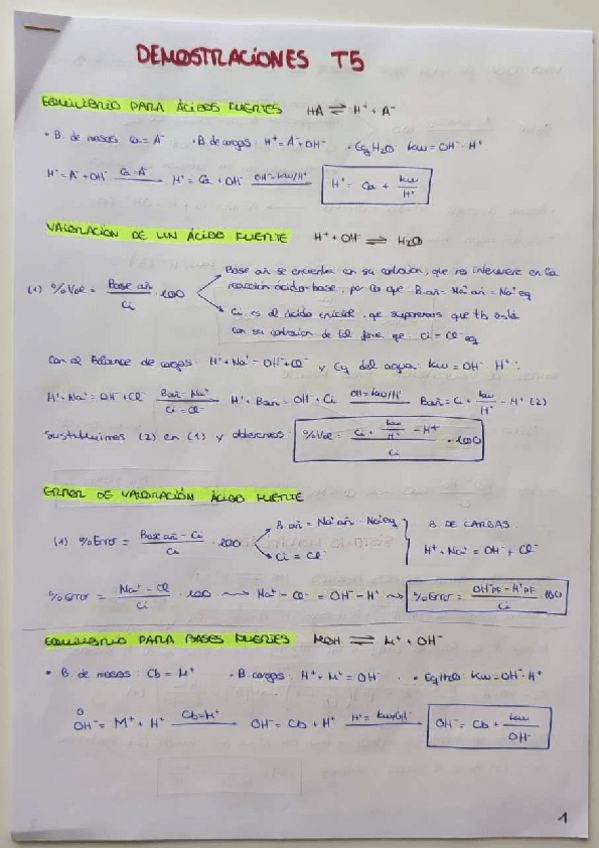 DEMOSTRACIONES T5
EQUILIBRIO PARA ÁCIDOS FUERTES HA ⇌ H⁺ + A⁻
• B. de masas Ca = A⁻ • B. de cargas: H⁺ = A⁻ + OH⁻ • Eq H₂O: Kw = OH⁻ · H⁺
H⁺ = A⁻ + OH⁻ —(Ca = A⁻)→ H⁺ = Ca + OH⁻ —(OH⁻ = Kw/H⁺)→ H⁺ = Ca + Kw/H⁺
VALORACIÓN DE UN ÁCIDO FUERTE H⁺ + OH⁻ ⇌ H₂O
Base añ se encuentra con su catión, que no interviene en la
(1) %Val = Base añ/Ci · 100 reacción ácido-base, por lo que B.añ = Na⁺añ = Na⁺eq
Ci es el ácido inicial, que suponemos que tb está
con su de tal forma que Ci = Cl⁻eq
Con el Balance de cargas: H⁺ + Na⁺ = OH⁻ + Cl⁻ y Eq del agua: Kw = OH⁻ · H⁺ :
H⁺ + Na⁺ = OH⁻ + Cl⁻ —(Bañ = Na⁺, Ci = Cl⁻)→ H⁺ + Bañ = OH⁻ + Ci —(OH⁻ = Kw/H⁺)→ Bañ = Ci + Kw/H⁺ - H⁺ (2)
Sustituimos (2) en (1) y obtenemos: %Val = (Ci + Kw/H⁺ - H⁺)/Ci · 100
ERROR DE VALORACIÓN ÁCIDO FUERTE
B.añ = Na⁺añ = Na⁺eq B. DE CARGAS:
(1) %Error = (Base añ - Ci)/Ci · 100
Ci = Cl⁻ H⁺ + Na⁺ = OH⁻ + Cl⁻
%Error = (Na⁺ - Cl⁻)/Ci · 100 ⟿ Na⁺ - Cl⁻ = OH⁻ - H⁺ ⟿ %Error = (OH⁻PF - H⁺PF)/Ci · 100
EQUILIBRIO PARA BASES FUERTES MOH ⇌ M⁺ + OH⁻
• B. de masas: Cb = M⁺ • B. cargas: H⁺ + M⁺ = OH⁻ • Eq H₂O: Kw = OH⁻ · H⁺
OH⁻ = M⁺ + H⁺ —(Cb = M⁺)→ OH⁻ = Cb + H⁺ —(H⁺ = Kw/OH⁻)→ OH⁻ = Cb + Kw/OH⁻
1